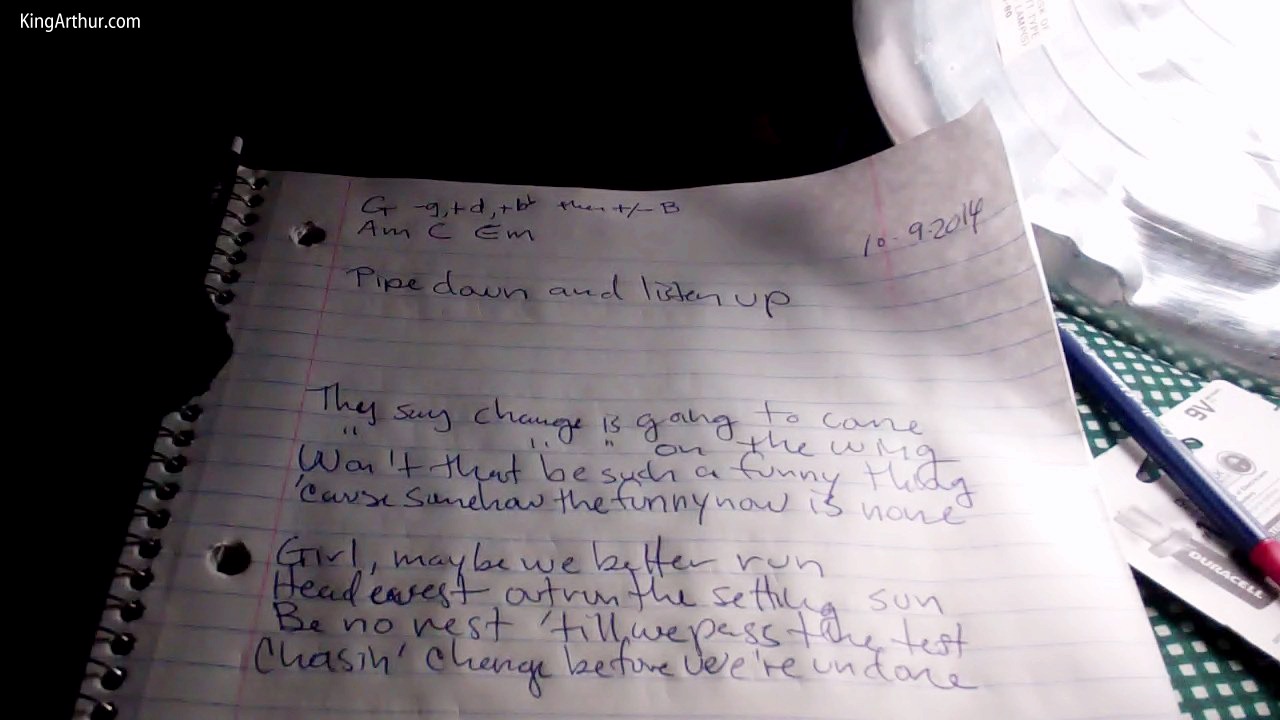 KingArthur.com
SK OF
T TYPE
LAMP(S)
G -g, +d, +b then +/- B
Am C Em
10-9-2014
Pipe down and listen up
They say change is going to come
" " " on the wing
Won't that be such a funny thing
'cause somehow the funny now is none
Girl, maybe we better run
Head outrun the setting sun
Be no rest 'till we pass the test
Chasin' change before we're undone
9V
DURACELL